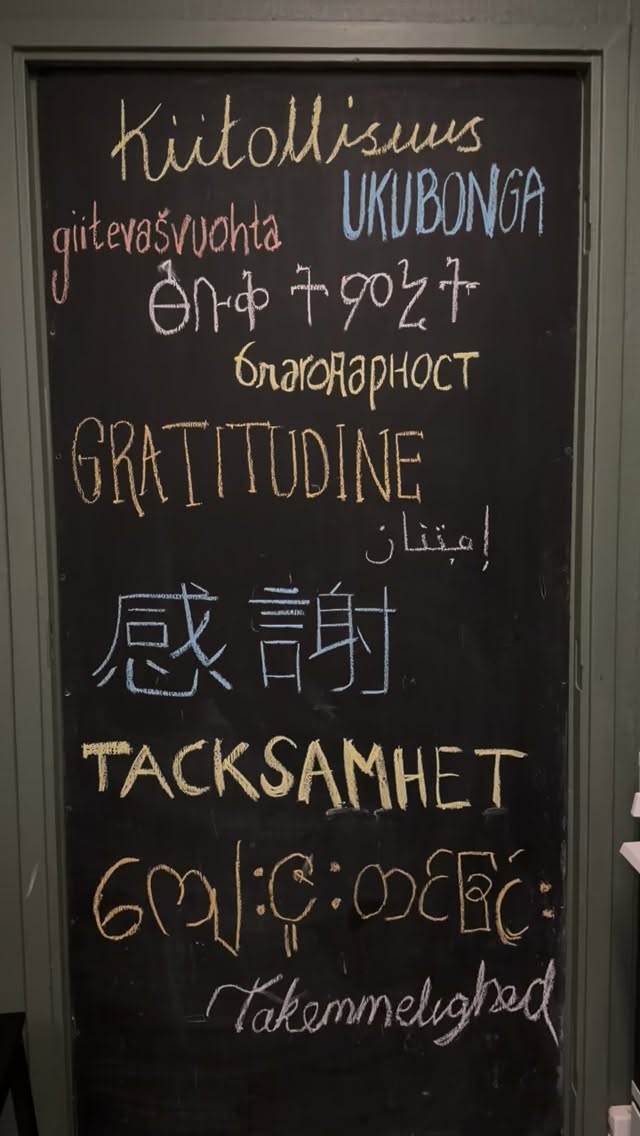 Kiitollisuus
UKUBONGA
giitevašvuohta
ፅቡቅ ትምኒት
благодарност
GRATITUDINE
إمتنان
感謝
TACKSAMHET
ကျေးဇူးတင်ခြင်း
Takemmelighed